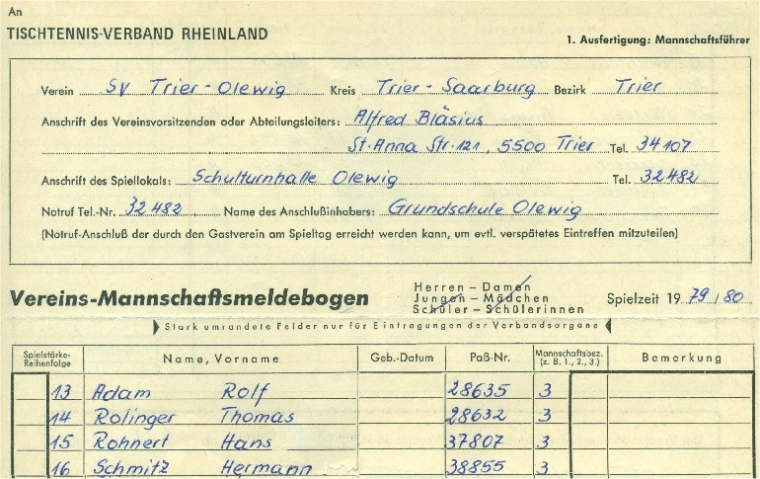 An
TISCHTENNIS-VERBAND RHEINLAND
1. Ausfertigung: Mannschaftsführer
Verein SV Trier-Olewig Kreis Trier-Saarburg Bezirk Trier
Anschrift des Vereinsvorsitzenden oder Abteilungsleiters: Alfred Bläsius
St. Anna Str. 121, 5500 Trier Tel. 34107
Anschrift des Spiellokals: Schulturnhalle Olewig Tel. 32482
Notruf Tel.-Nr. 32482 Name des Anschlußinhabers: Grundschule Olewig
(Notruf-Anschluß der durch den Gastverein am Spieltag erreicht werden kann, um evtl. verspätetes Eintreffen mitzuteilen)
Vereins-Mannschaftsmeldebogen
Herren – Damen
Jungen – Mädchen
Schüler – Schülerinnen
Spielzeit 19 79/80
Stark umrandete Felder nur für Eintragungen der Verbandsorgane
Spielstärke-Reihenfolge Name, Vorname Geb.-Datum Paß-Nr. Mannschaftsbez. (z. B. 1., 2., 3.) Bemerkung
13 Adam Rolf 28635 3
14 Rolinger Thomas 28632 3
15 Rohnert Hans 37807 3
16 Schmitz Hermann 38855 3